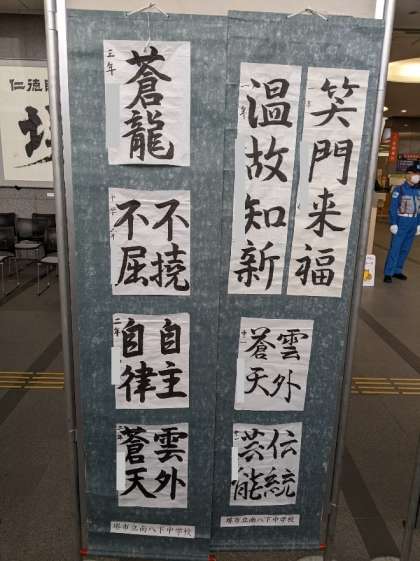 笑門来福
一年
温故知新
雲外
蒼天
中一
伝統
芸能
堺市立南八下中学校
三年
蒼龍
不撓
不屈
自主
自律
二年
雲外
蒼天
堺市立南八下中学校
仁徳